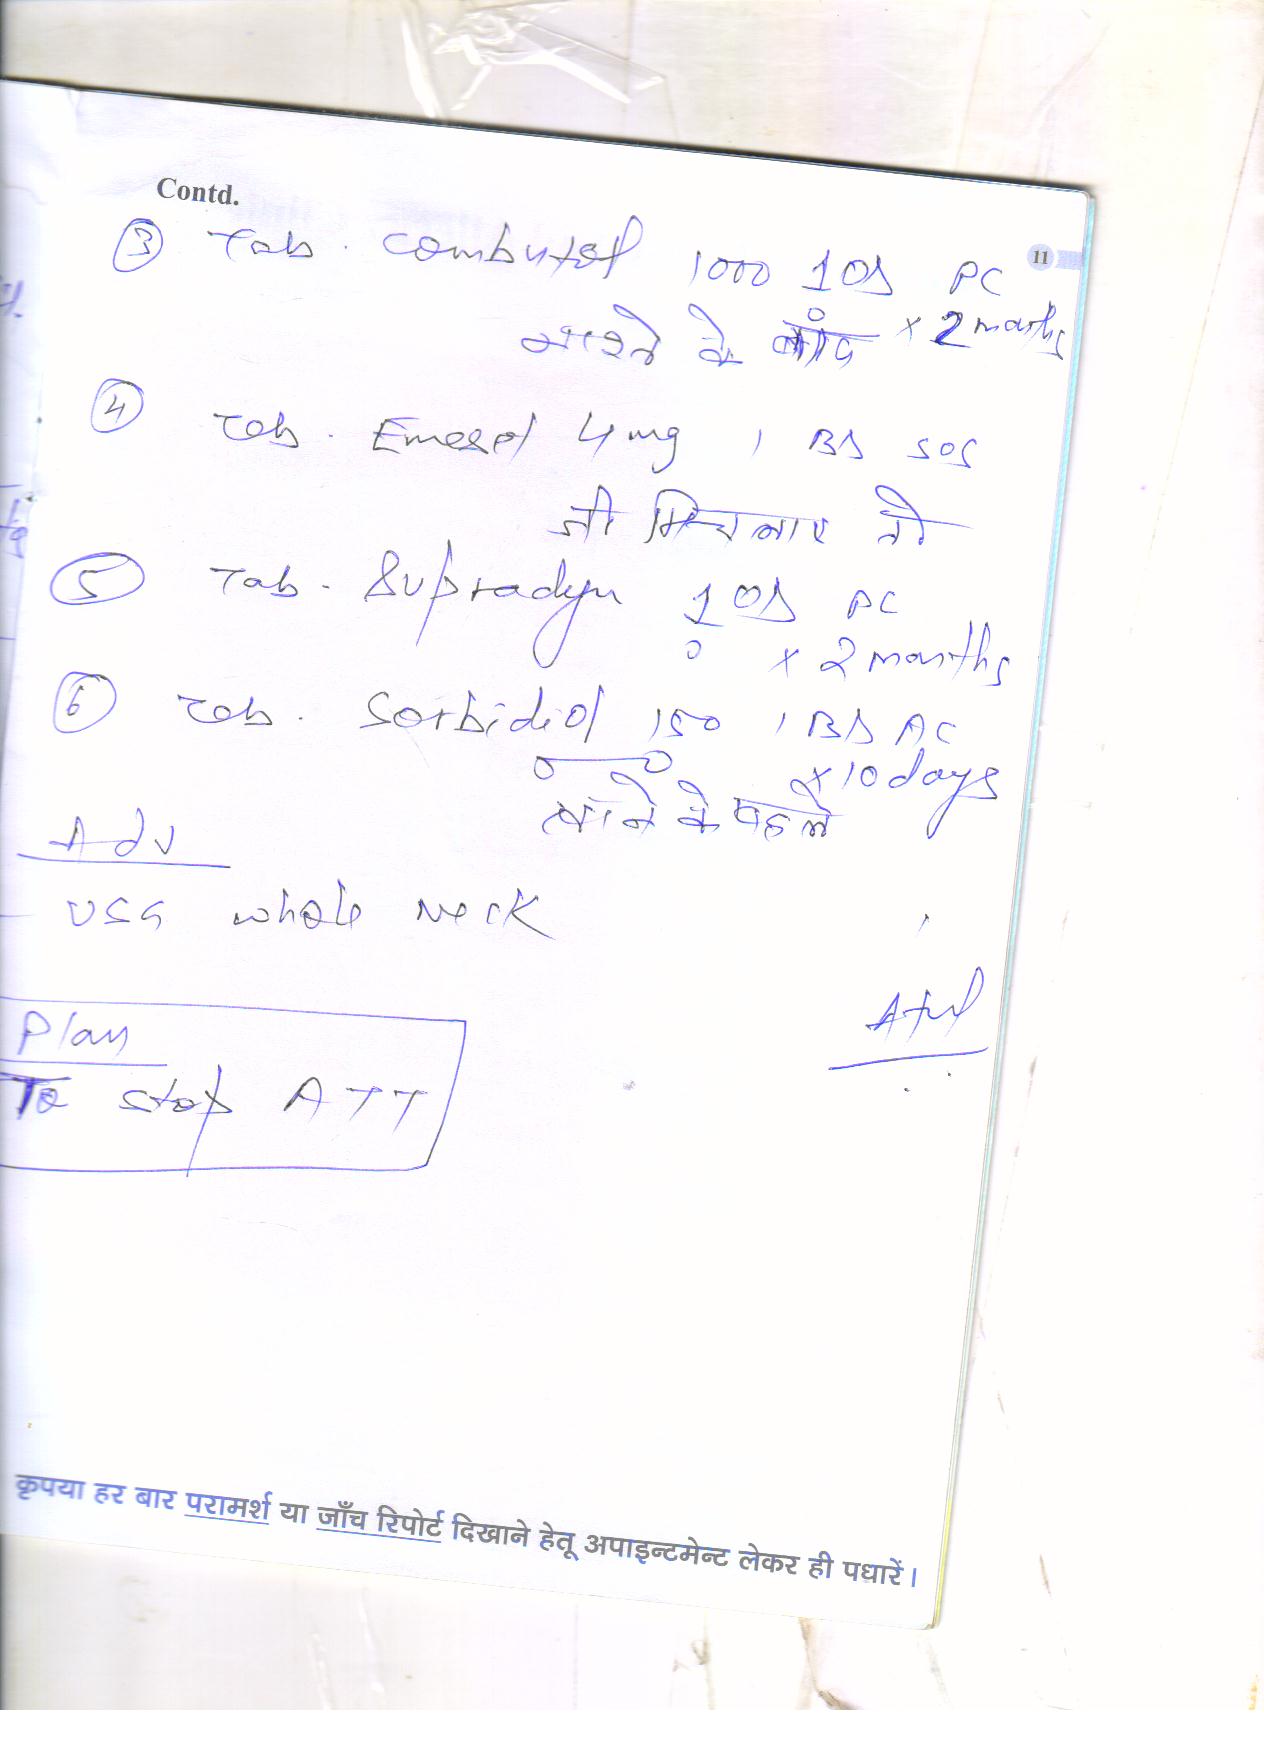 Contd.
11
③ Tab. Combutol 1000 1 OD PC
नाश्ते के बाद × 2 months
④ Tab. Emeset 4mg 1 BD SOS
जी मिचलाए तो
⑤ Tab. Supradyn 1 OD PC
× 2 months
⑥ Tab. Sorbidiol 150 1 BD AC
× 10 days
खाने के पहले
Adv
USG whole Neck
Atul
Plan
To stop ATT
कृपया हर बार परामर्श या जाँच रिपोर्ट दिखाने हेतू अपाइन्टमेन्ट लेकर ही पधारें।